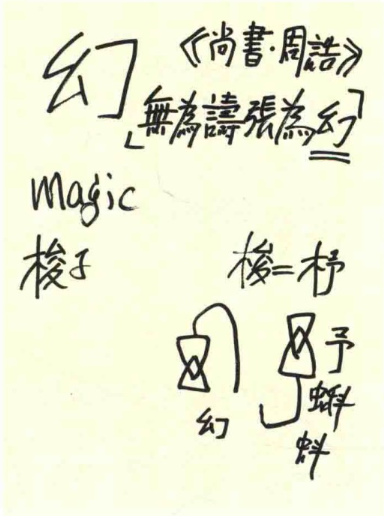 幻 《尚書·周誥》
「無為譸張為幻」
magic
梭子 梭=杼
予
幻
蝌
蚪